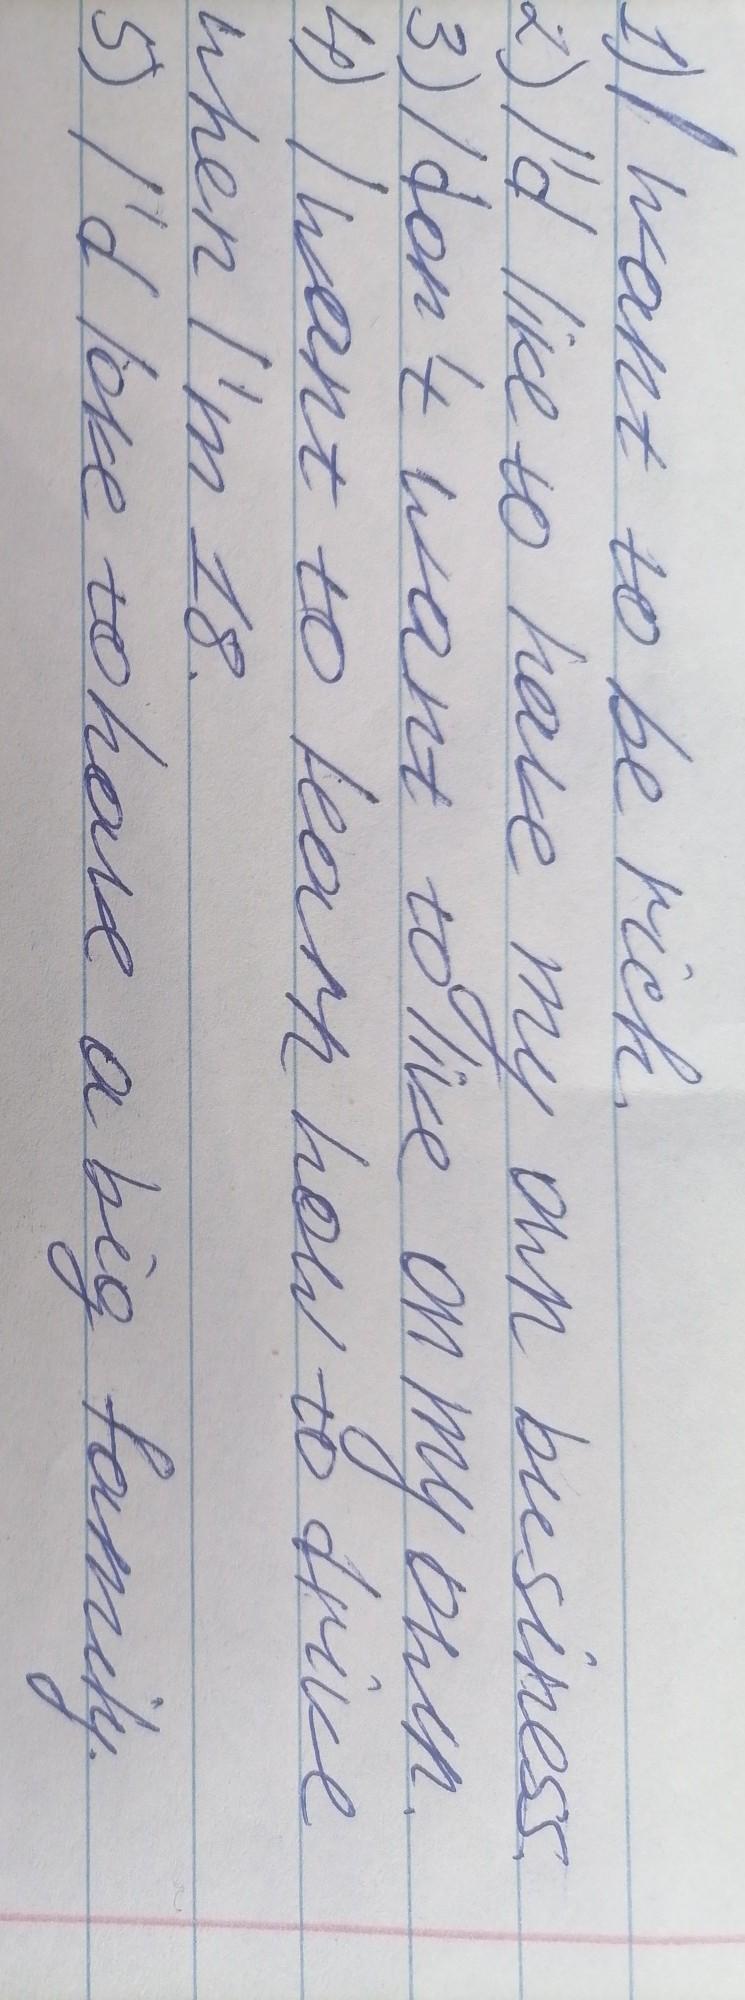 1) I want to be rich.
2) I'd like to have my own business.
3) I don't want to live on my own.
4) I want to learn how to drive
when I'm 18.
5) I'd love to have a big family.